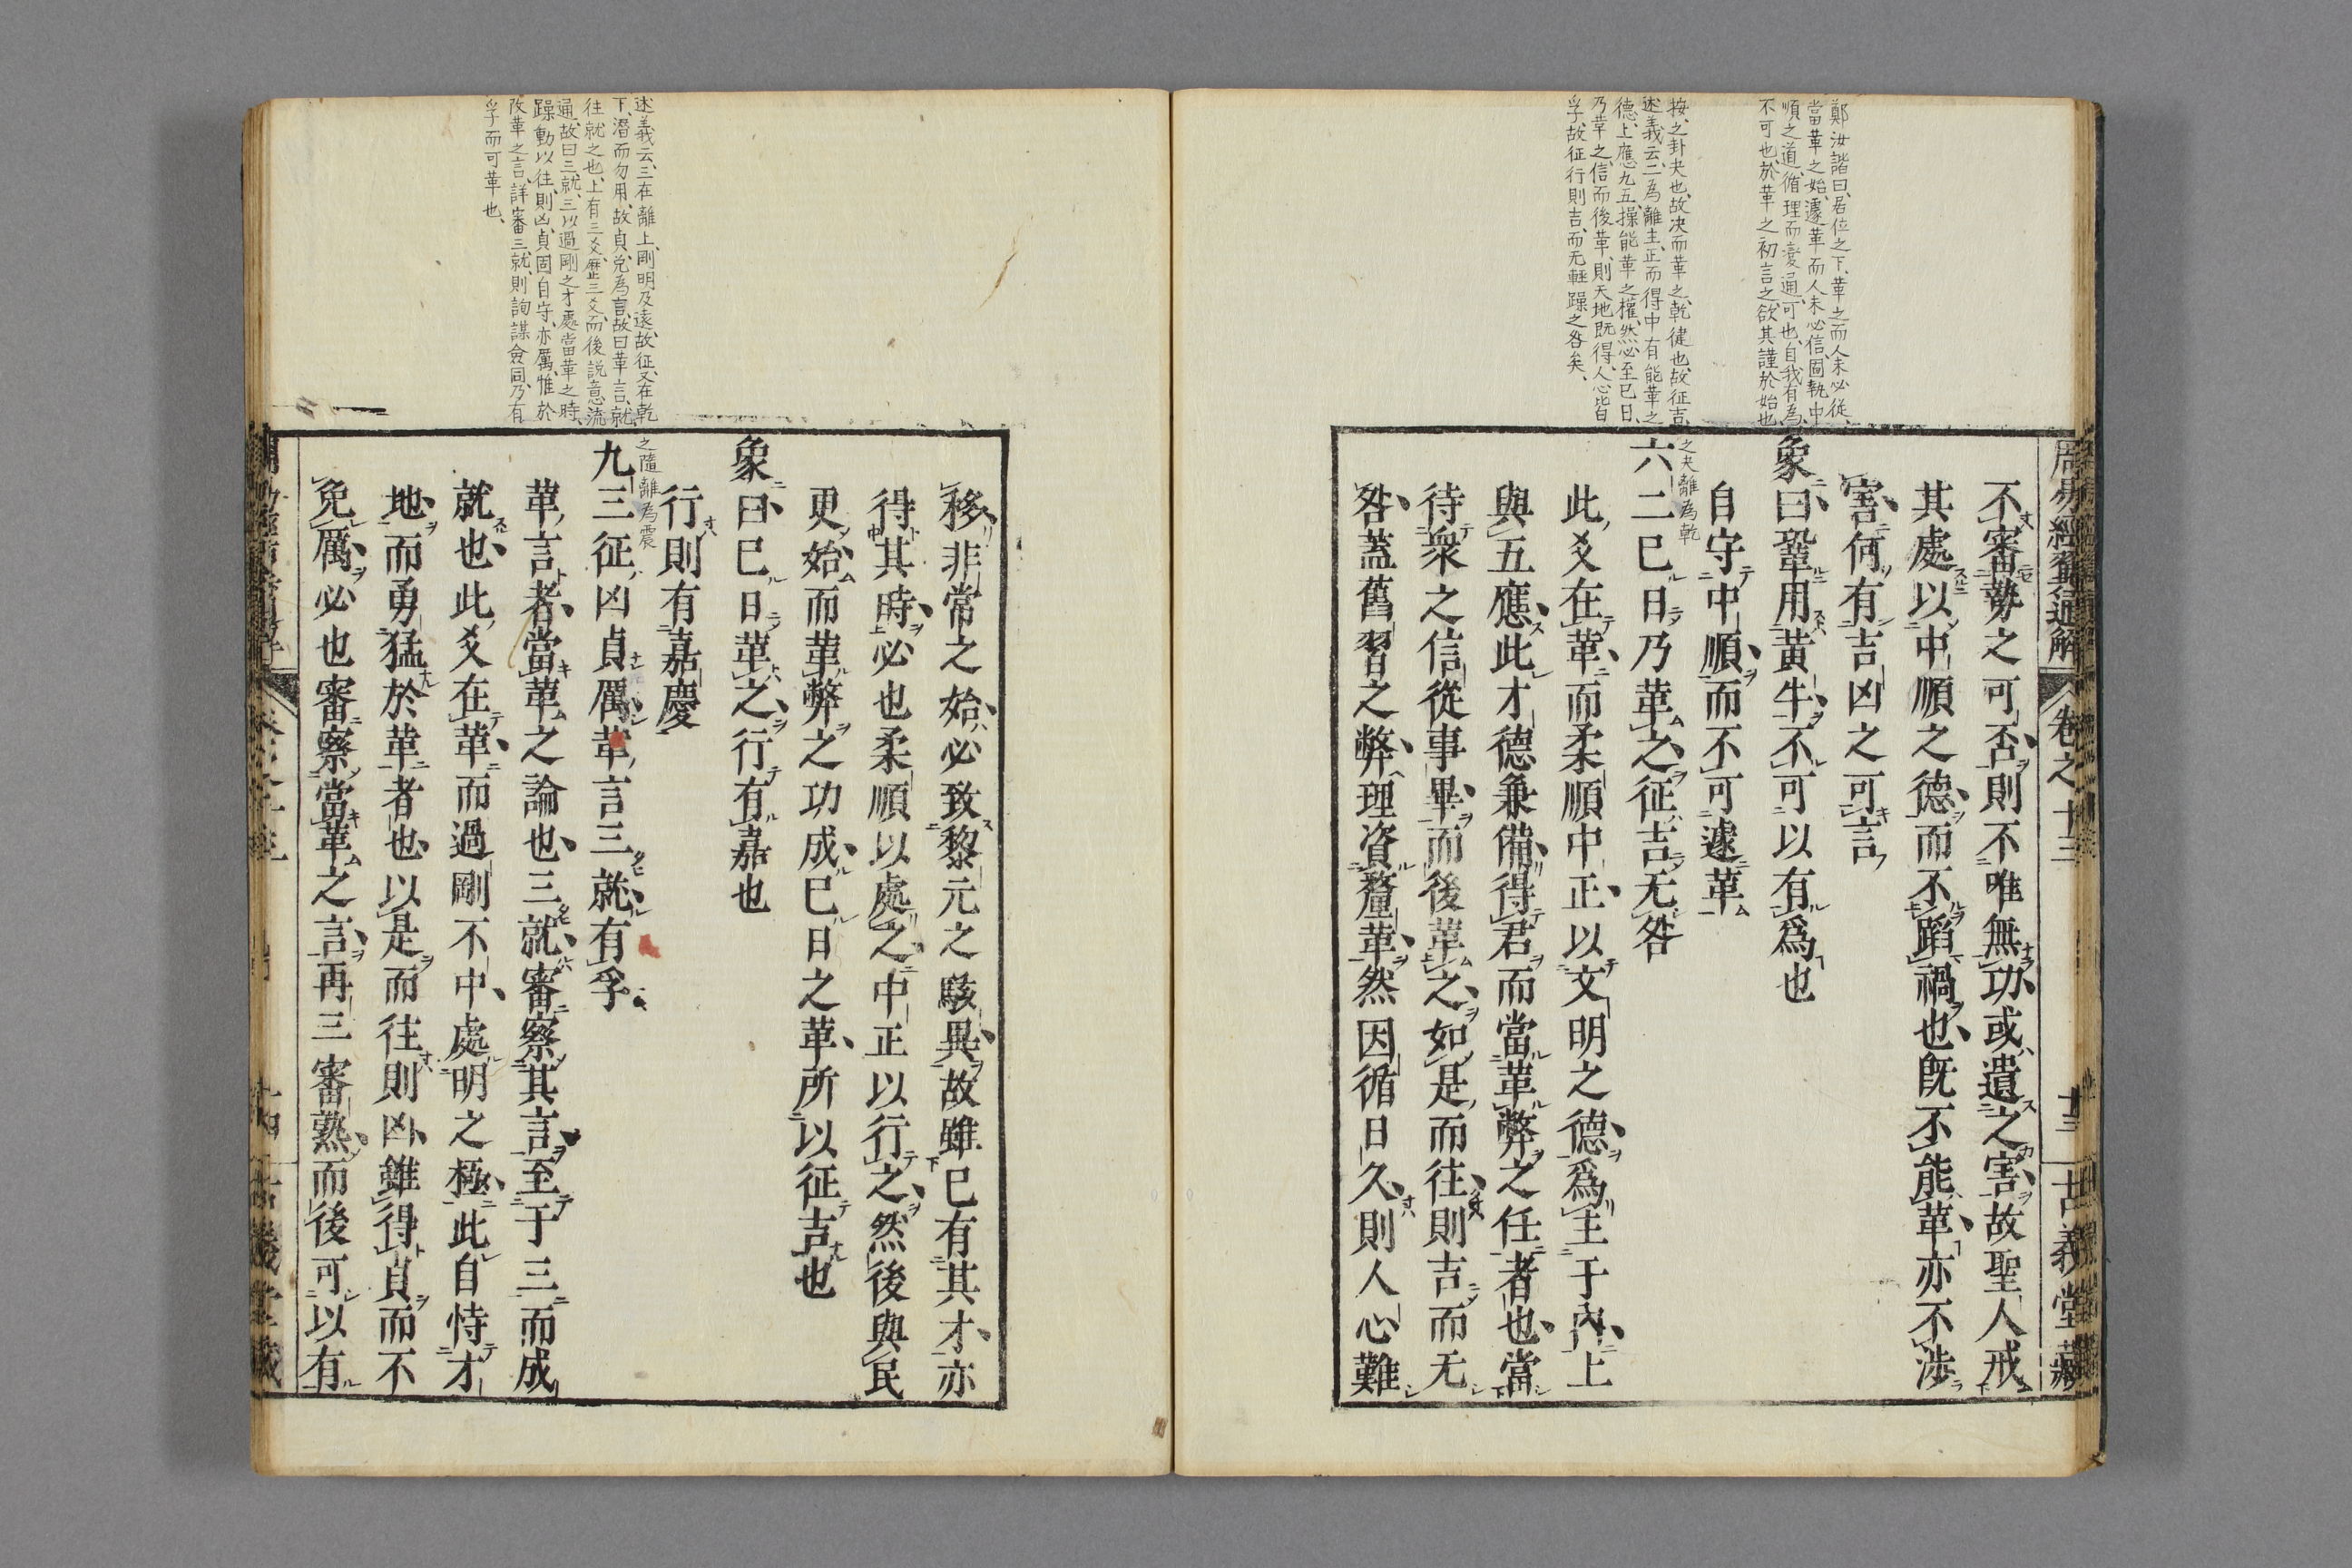 鄭汝諧曰、居位之下、革之而人未必從、
當革之始、遽革而人未必信固執中
順之道、循理而變通、可也、自我有為、
不可也、於革之初言之、欲其謹於始也、
按、之卦夬也、故决而革之、乾健也、故征吉、
述義云、二為離主、正而得中有能革之
德、上應九五、操能革之權、然必至巳日、
乃革之、信而後革、則天地既得、人心皆
孚、故征行則吉、而无輕躁之咎矣、
周易經翼通解
卷之十三
十三
古義堂藏
不審勢之可否則不唯無功或遺之害故聖人戒
其處以中順之德而不蹈禍也既不能革亦不涉
害何有吉凶之可言
象曰鞏用黃牛不可以有爲也
自守中順而不可遽革
之夬離為乾
六二巳日乃革之征吉无咎
此爻在革而柔順中正以文明之德爲主于內上
與五應此才德兼備得君而當革弊之任者也當
待衆之信從事畢而後革之如是而往則吉而无
咎蓋舊習之弊理資釐革然因循日久則人心難
移非常之始必致黎元之駭異故雖巳有其才亦
得其時必也柔順以處之中正以行之然後與民
更始而革弊之功成巳日之革所以征吉也
象曰巳日革之行有嘉也
行則有嘉慶
之隨離為震
九三征凶貞厲革言三就有孚
革言者當革之論也三就審察其言至于三而成
就也此爻在革而過剛不中處明之極此自恃才
地而勇猛於革者也以是而往則凶雖得貞而不
免厲必也審察當革之言再三審熟而後可以有
述義云、三在離上、剛明及遠、故征、又在乾
下、潛而勿用、故貞、兌為言、故曰革言、就、
往就之也、上有三爻、歷三爻、而後說意流
通、故曰三就、三以過剛之才、處當革之時、
躁動以往、則凶、貞固自守、亦厲、惟於
改革之言、詳審三就、則詢謀僉同、乃有
孚而可革也、